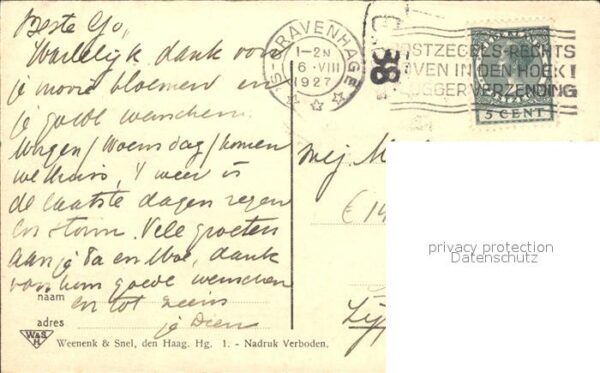 Beste Jo,
Hartelijk dank voor
je mooie bloemen en
je goede wenschen.
Morgen/Woensdag/komen
we thuis, 't weer is
de laatste dagen regen
en storm. Vele groeten
aan je Pa en Moe, dank
voor hun goede wenschen
en tot ziens
je Dien
naam
adres
W&S
H
Weenenk & Snel, den Haag. Hg. 1. - Nadruk Verboden.
'S-GRAVENHAGE
1-2N
6 VIII
1927
38
STZEGELS RECHTS
VEN IN DEN HOEK!
UGGER VERZENDING
5 CENT
Mej
privacy protection
Datenschutz